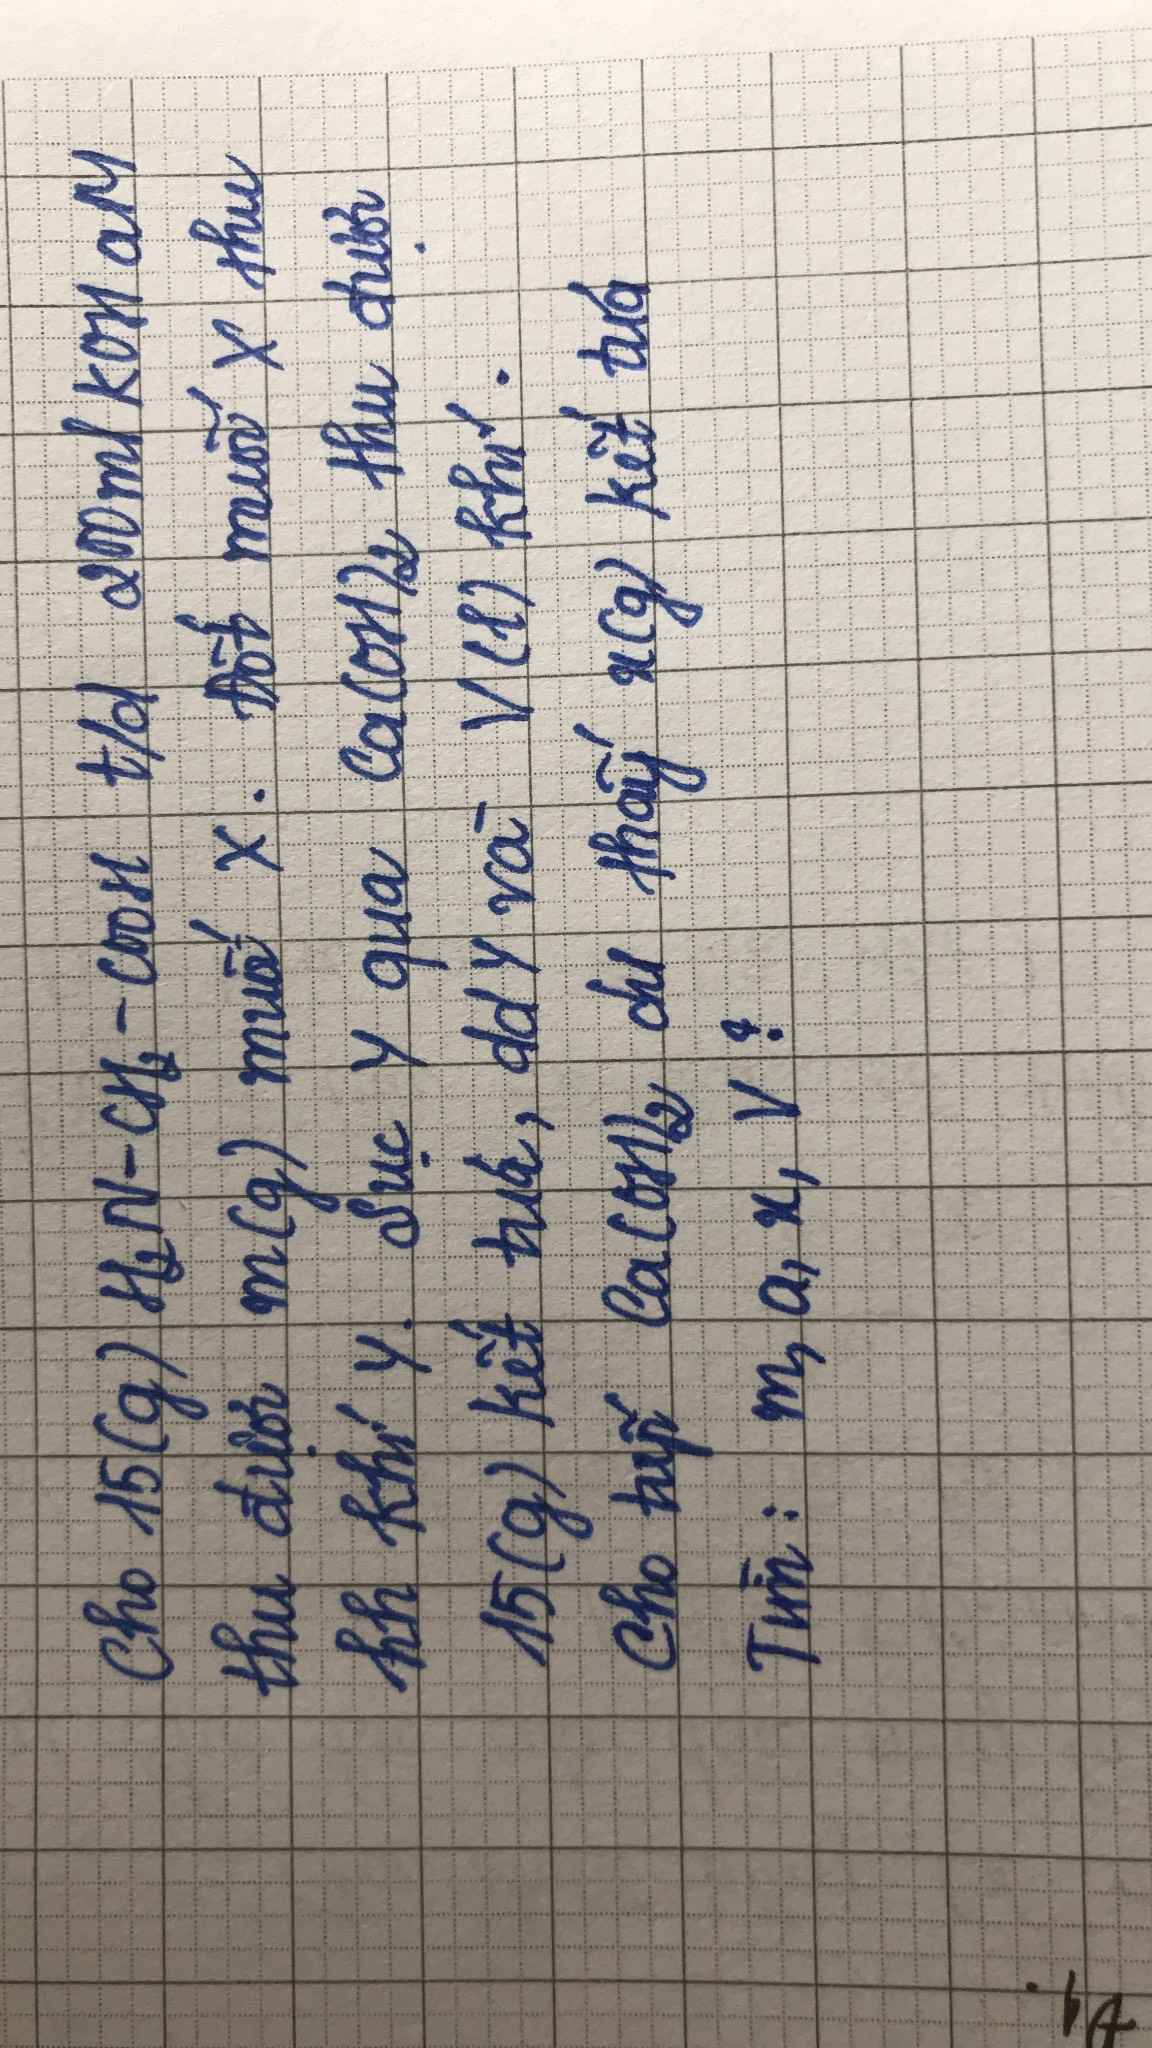 Cho 15(g) H₂N-CH₂-COOH t/d 200ml KOH aM
thu được m(g) muối X. Đốt muối X thu
hh khí Y. Sục Y qua Ca(OH)₂ thu được
15(g) kết tủa, dd Y và V(l) khí.
Cho tiếp Ca(OH)₂ dư thấy x(g) kết tủa
Tìm: m, a, x, V?